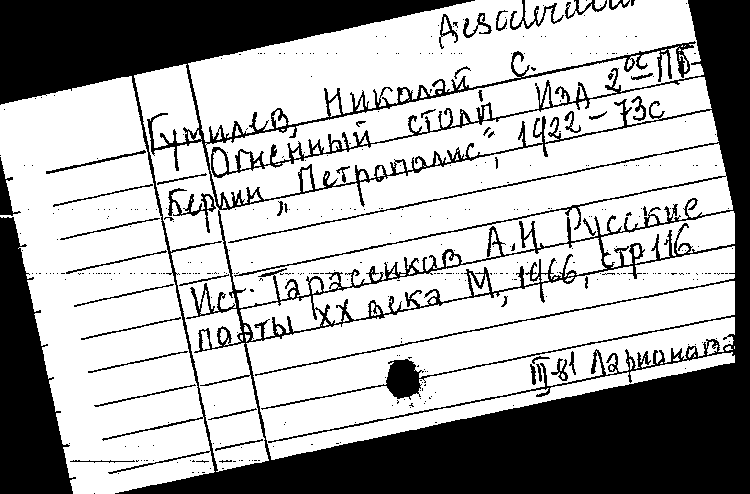 Desiderata
Гумилев, Николай, С.
Огненный столп. Изд 2ое ПБ-
Берлин „Петрополис", 1922 – 73с
Ист: Тарасенков А.Н. Русские
поэты XX века М., 1966, стр 116
III-81 Ларионова